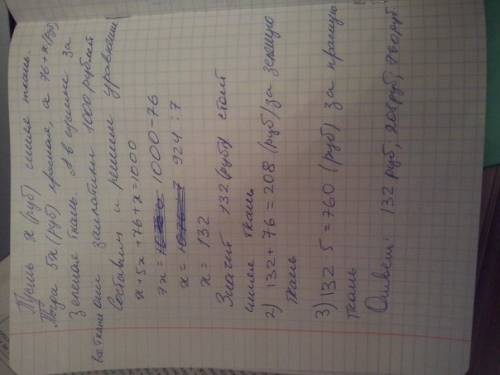 Пусть x (руб) синяя ткань
Тогда 5x (руб) красная, а 76+x (руб)
Зелёная ткань. А в сумме за
все ткани они заплатили 1000 рублей
Составим и решим уравнение
x+5x+76+x=1000
7x= 1000-76
x= 924:7
x= 132
Значит 132 (руб) стоит
синяя ткань
2) 132+76=208 (руб) за зелёную
ткань
3) 132 5=760 (руб) за красную
ткань
Ответ: 132 руб, 208 руб, 760 руб.